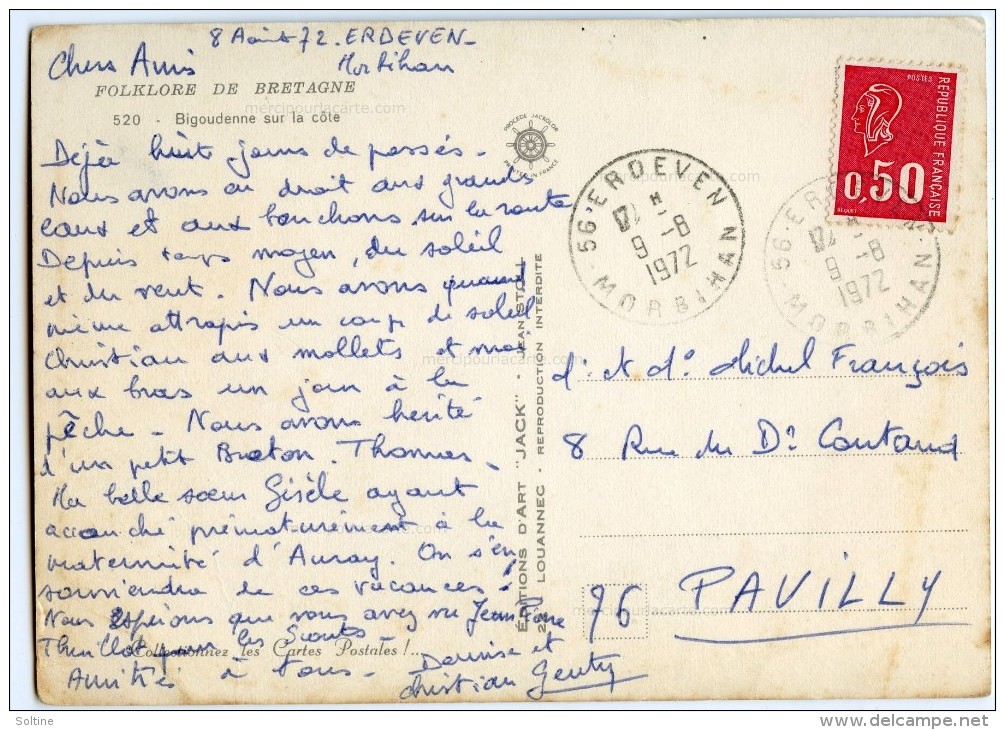 8 Août 72. ERDEVEN -
Morbihan
Chers Amis
FOLKLORE DE BRETAGNE
520 - Bigoudenne sur la côte
Dejà huit jours de passés -
Nous avons eu droit aux grandes
eaux et aux bouchons sur la route
Depuis temps moyen, du soleil
et du vent. Nous avons quand
même attrapés un coup de soleil
Christian aux mollets et moi
aux bras un jour à la
pêche - Nous avons hérité
d'un petit Breton. Thomas -
Ma belle soeur Gisèle ayant
accouché prématurément à la
maternité d'Auray. On s'en
souviendra de ces vacances!
Nous espérons que vous avez vu Jean Pierre
pour les Scouts
Collectionnez les Cartes Postales !..
Amitiés à tous -
Denise et
Christian Genty
PROCEDE JACKOLOR
MADE IN FRANCE
ÉDITIONS D'ART "JACK"
22 - LOUANNEC - REPRODUCTION INTERDITE
56 - ERDEVEN
9 -8
1972
MORBIHAN
POSTES
REPUBLIQUE FRANÇAISE
0,50
BEQUET
56 - ERDEVEN
9 -8
1972
MORBIHAN
M. et Me Michel François
8 Rue du Dr Coutand
76 PAVILLY
mercipourlacarte.com
mercipourlacarte.com
mercipourlacarte.com
mercipourlacarte.com
mercipourlacarte.com
mercipourlacarte.com
Soltine
www.delcampe.net